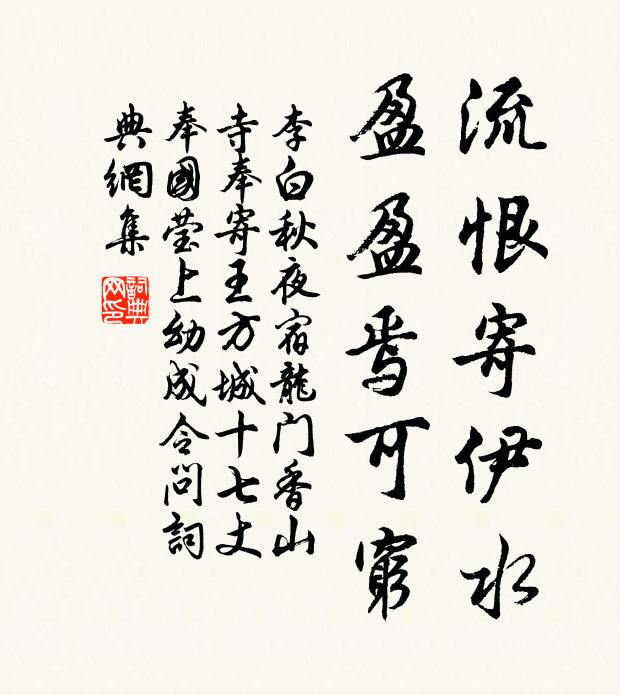 流恨寄伊水
盈盈焉可窮
李白秋夜宿龍门香山
寺奉寄王方城十七丈
奉國瑩上幼成令问詞
典網集
詞典
网印